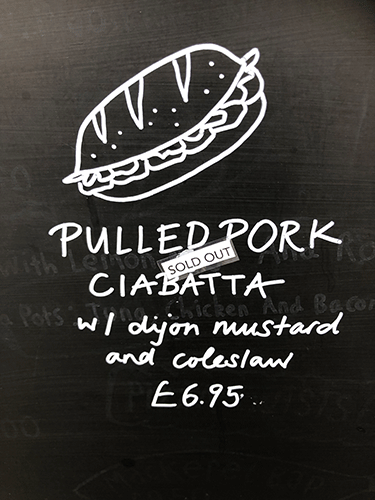 PULLED PORK
SOLD OUT
CIABATTA
w/ dijon mustard
and coleslaw
£6.95
With Lemon And
Pots Tuna Chicken And Bacon